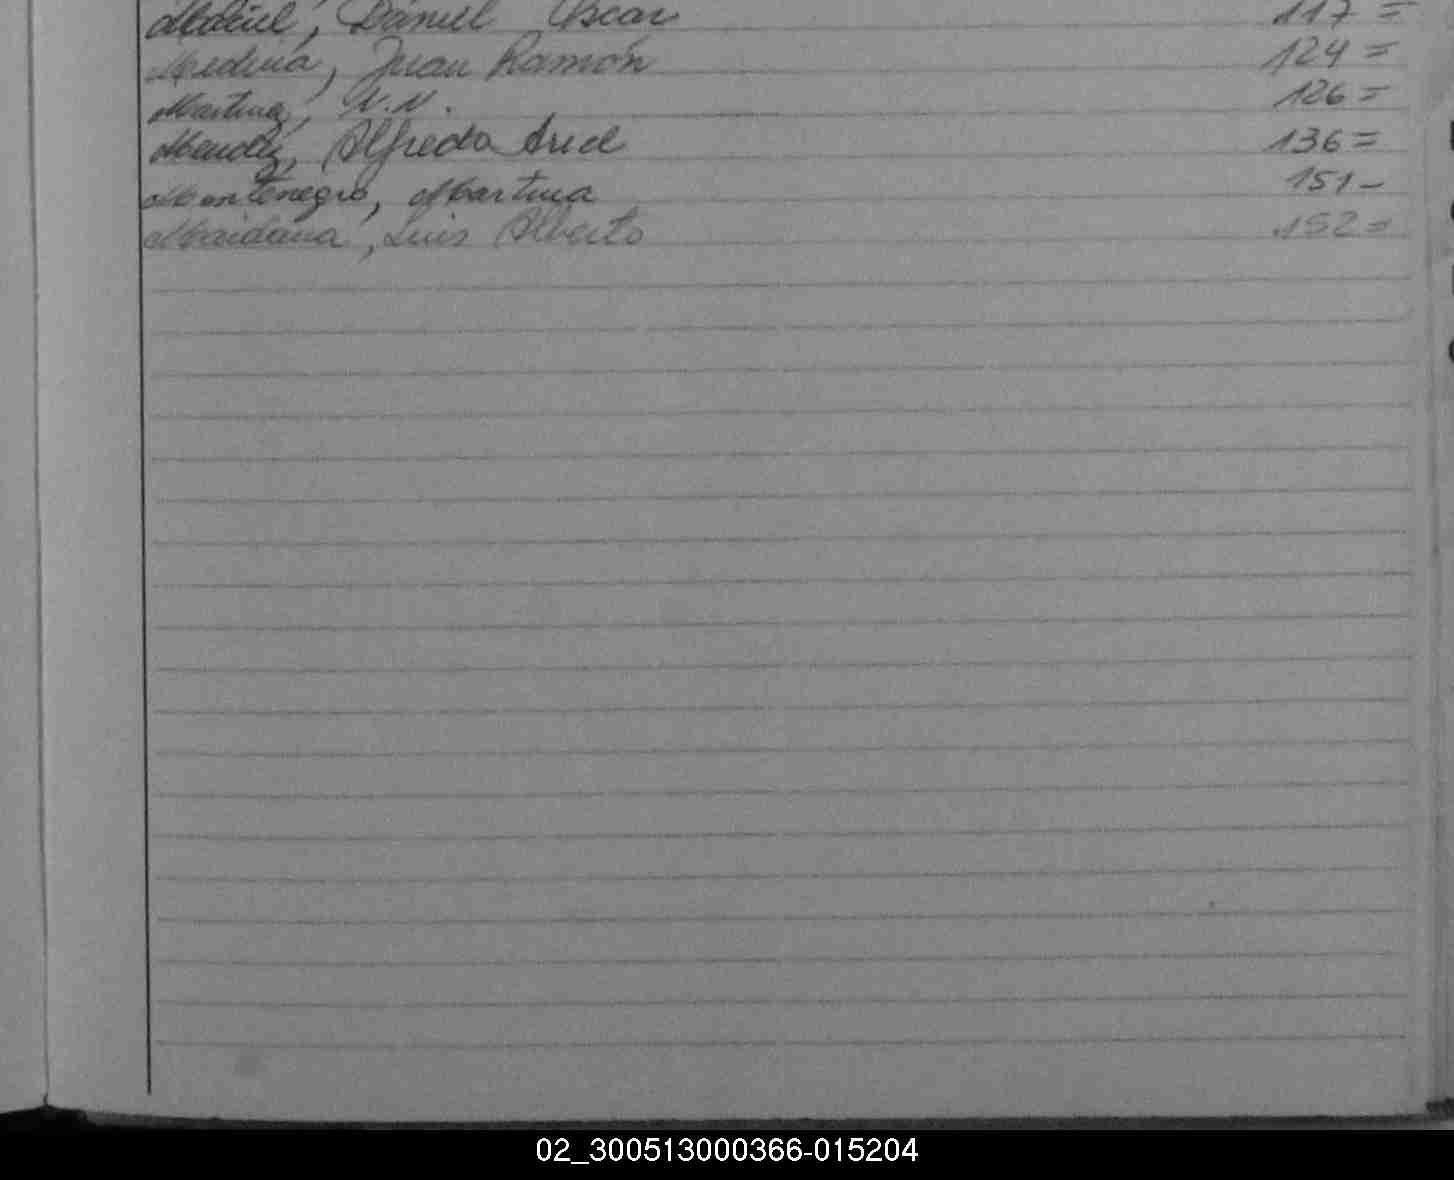 Daniel Oscar 117 =
Medina, Juan Ramón 124 =
Martinez, N.N. 126 =
Mendez, Alfredo Ariel 136 =
Montenegro, Martina 151 -
Maidana, Luis Alberto 152 =
02_300513000366-015204